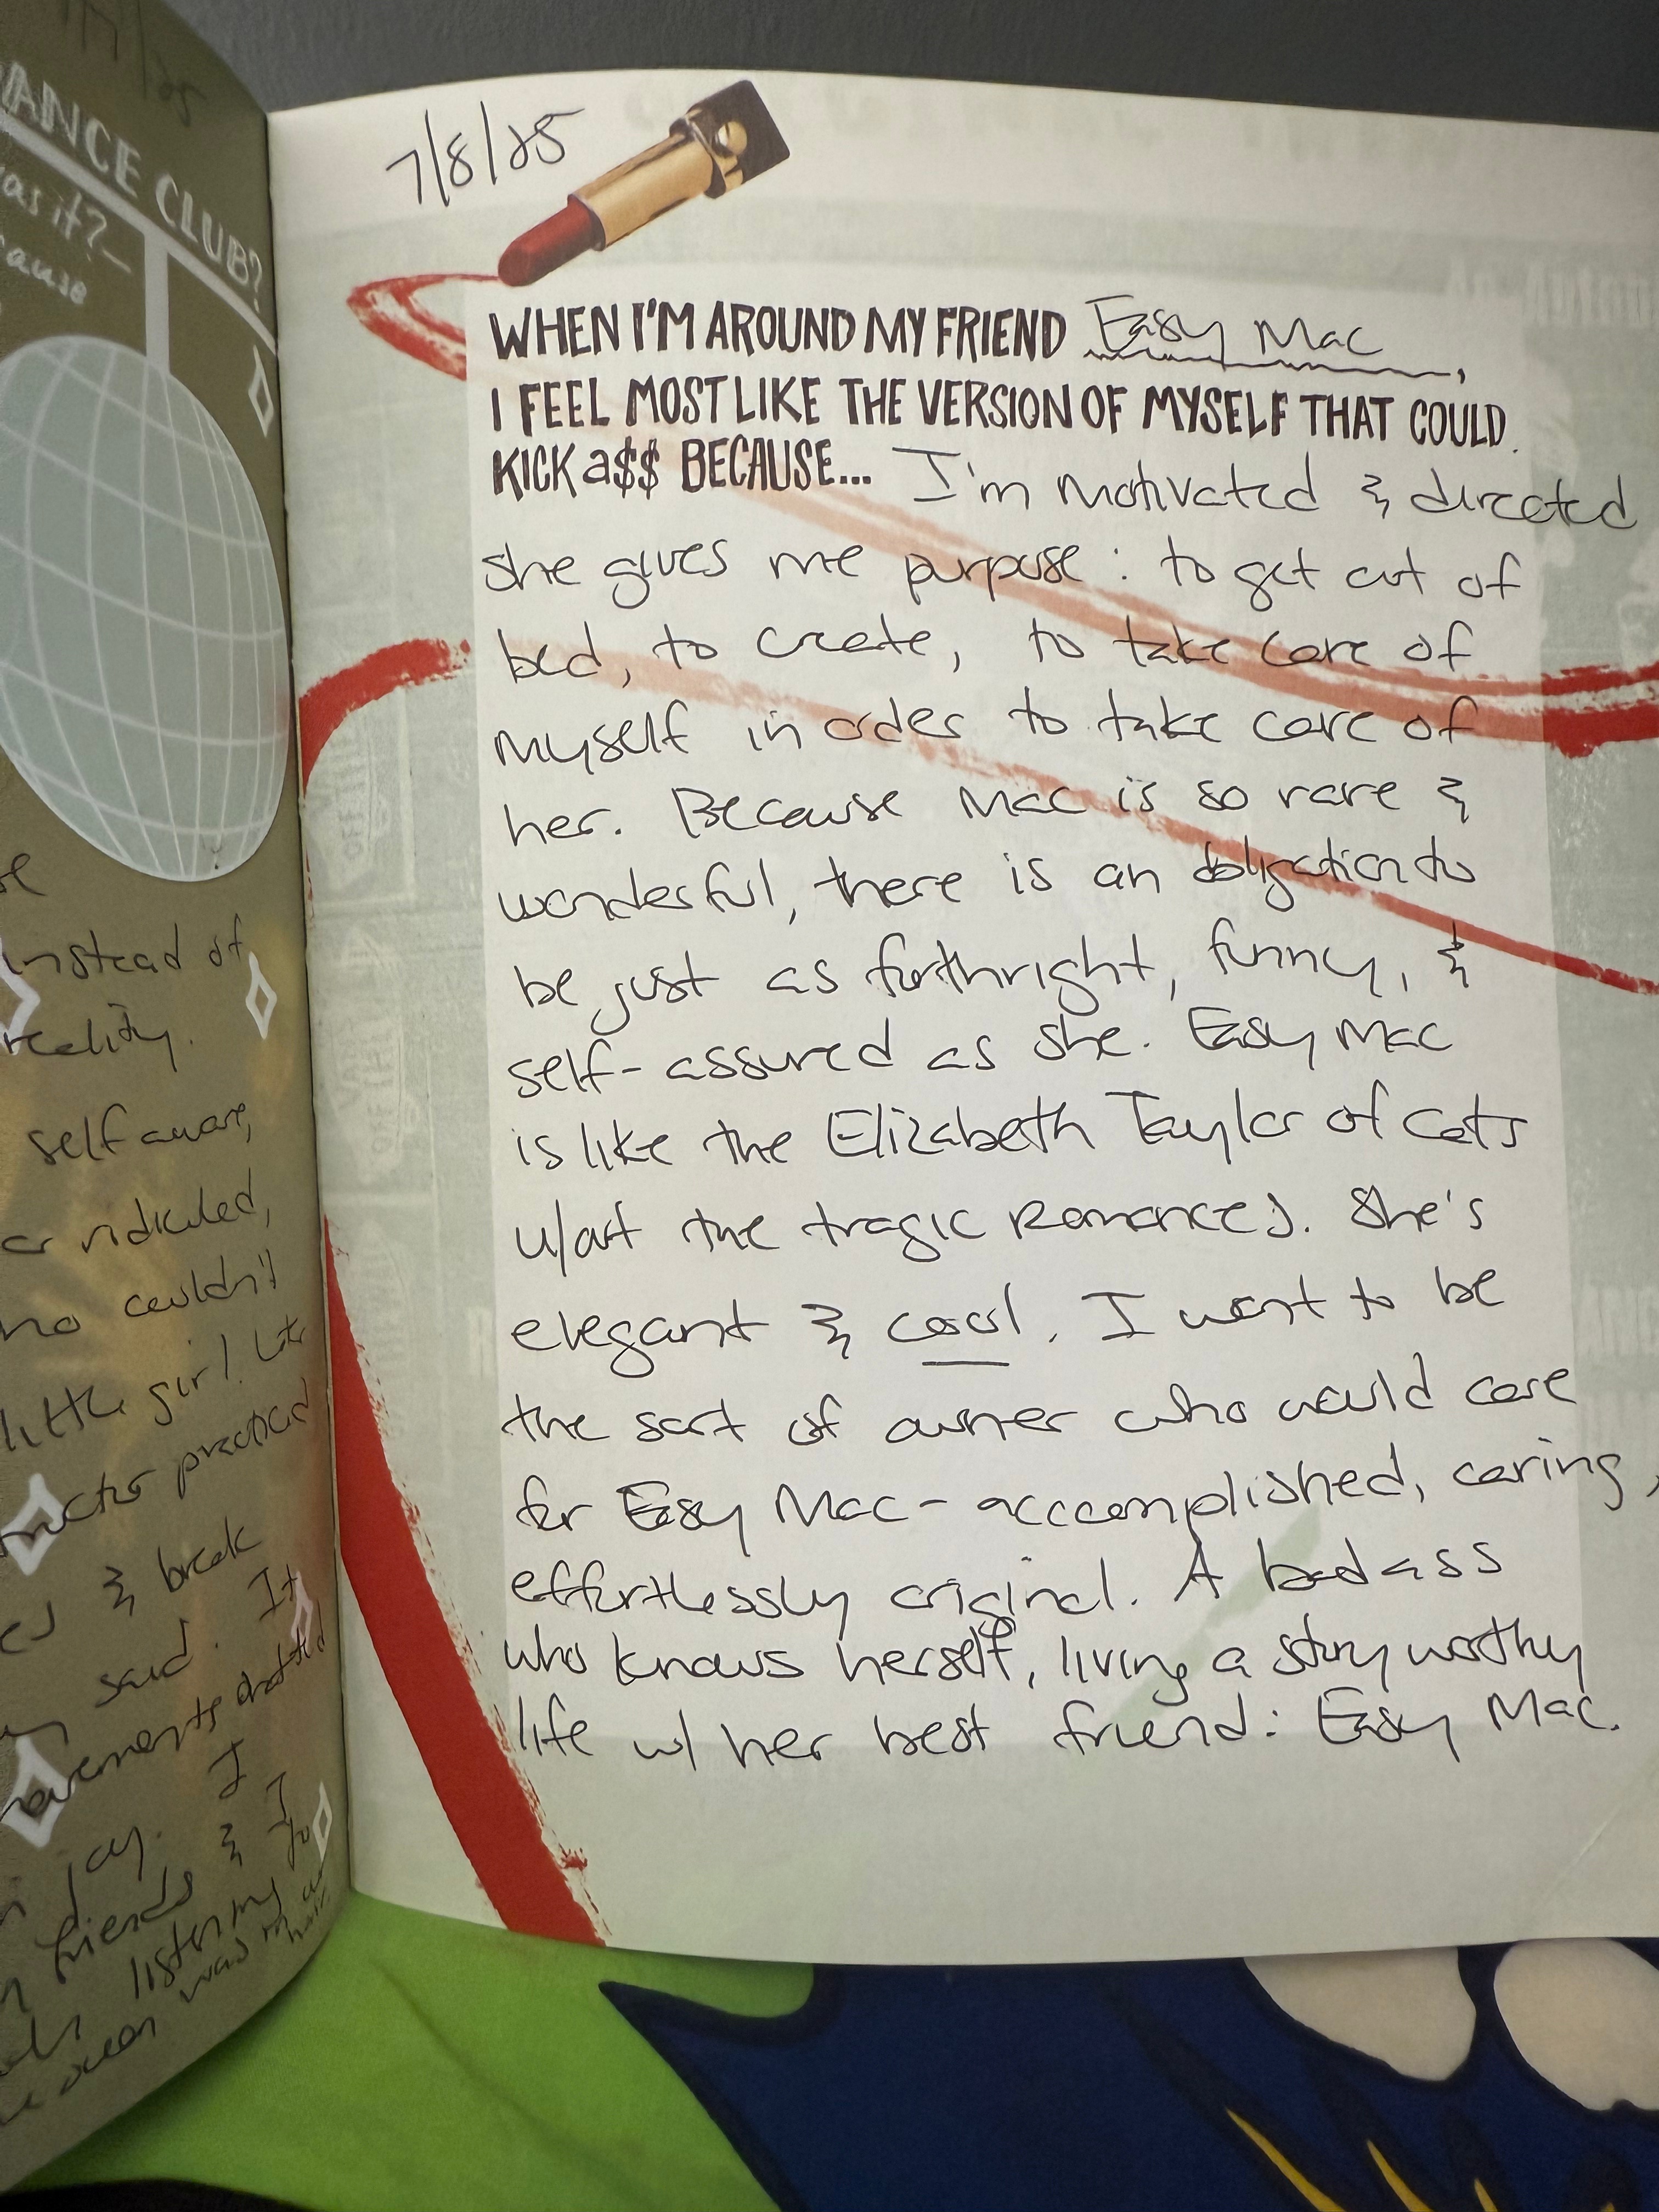 7/25
ANCE CLUB?
as it?
cause
instead of
reality.
self aware,
or ridiculed,
who couldn't
little girl. Later
practiced
& break
said. It
movements
joy. I
friends & I
listening to
ocean was in
hair.
7/8/25
WHEN I'M AROUND MY FRIEND Easy Mac,
I FEEL MOST LIKE THE VERSION OF MYSELF THAT COULD
KICK a$$ BECAUSE... I'm motivated & directed
she gives me purpose: to get out of
bed, to create, to take care of
myself in order to take care of
her. Because Mac is so rare &
wonderful, there is an obligation to
be just as forthright, funny, &
self-assured as she. Easy Mac
is like the Elizabeth Taylor of cats
w/out the tragic romances. She's
elegant & cool. I want to be
the sort of owner who would care
for Easy Mac - accomplished, caring,
effortlessly original. A badass
who knows herself, living a story worthy
life w/ her best friend: Easy Mac.